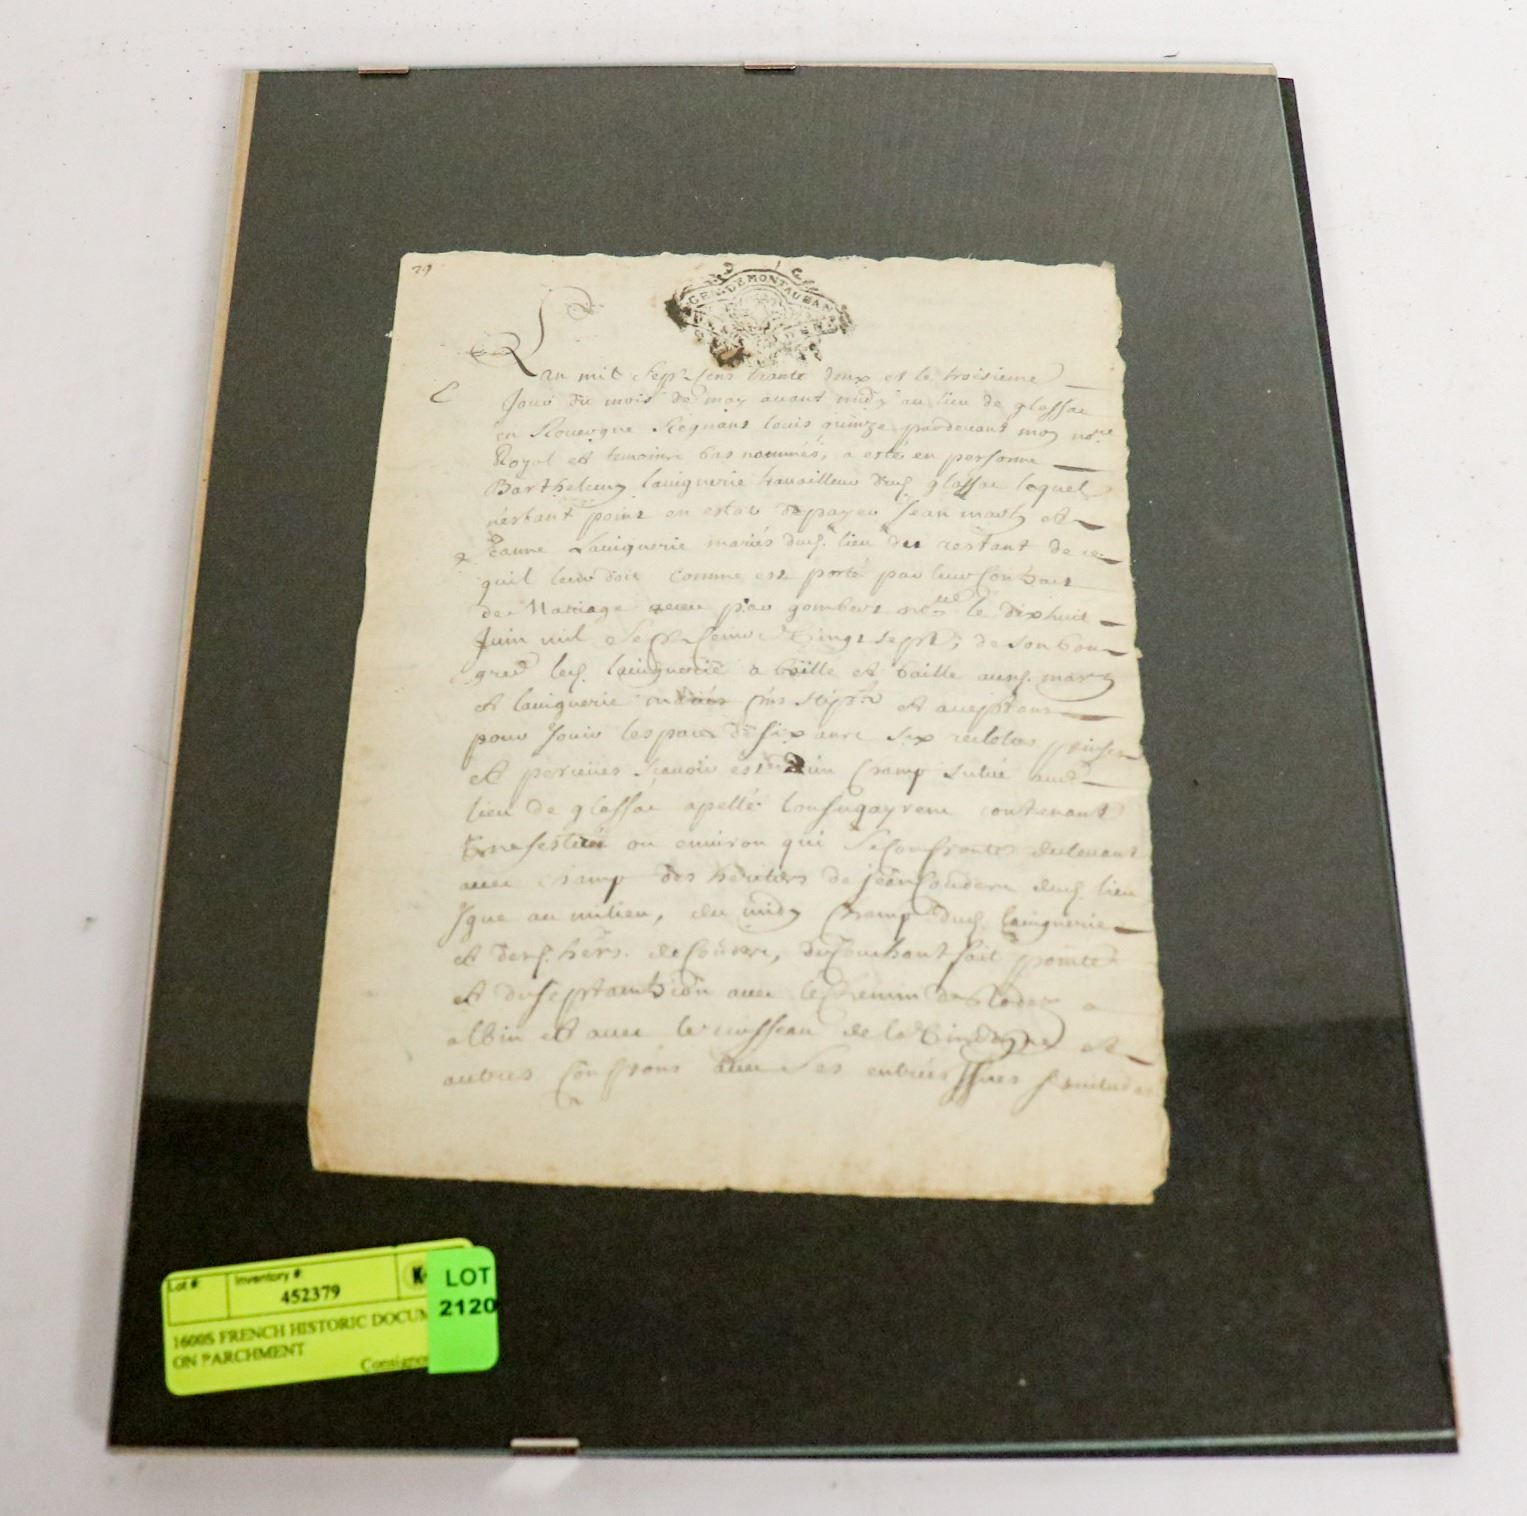 29
GEN. DE MONTAUBAN
Lan mil sept cens trante deux et le troisieme
Jour du mois de may avant midy au lieu de glassac
en Rouergue Regnant Louis quinze pardevant moy nore
Royal et temoins bas nommés, a esté en personne
Barthelemy Lavignerie travailleur dud. glassac lequel
n'estant point en estat de payer Jean et
Jeanne Lavignerie mariés dud. lieu du restant de ce
quil leur doit comme est porté par leur Contract
de Mariage par le dixhuit
Juin mil sept cens vingt sept, de son bon
gred led. Lavignerie a baillé et baille
et Lavignerie mariés et aceptans
pour Jouir lespace de six ans six recoltes prinses
et percues scavoir est un Champ situé aud.
lieu de glassac apellé contenant
ou environ qui se confronte du levant
avec champ des heritiers de jean Couderc dud. lieu
au milieu, du midy Champ dud. Lavignerie
et desd. hers. de du Couchant fait pointe
et du septantrion avec le Chemin de Rodez a
albin et avec le ruisseau de la et
autres Confrons avec ses entrées issues servitudes
Lot #:
Inventory #
452379
K
LOT
2120
1600S FRENCH HISTORIC DOCUM
ON PARCHMENT
Consignor